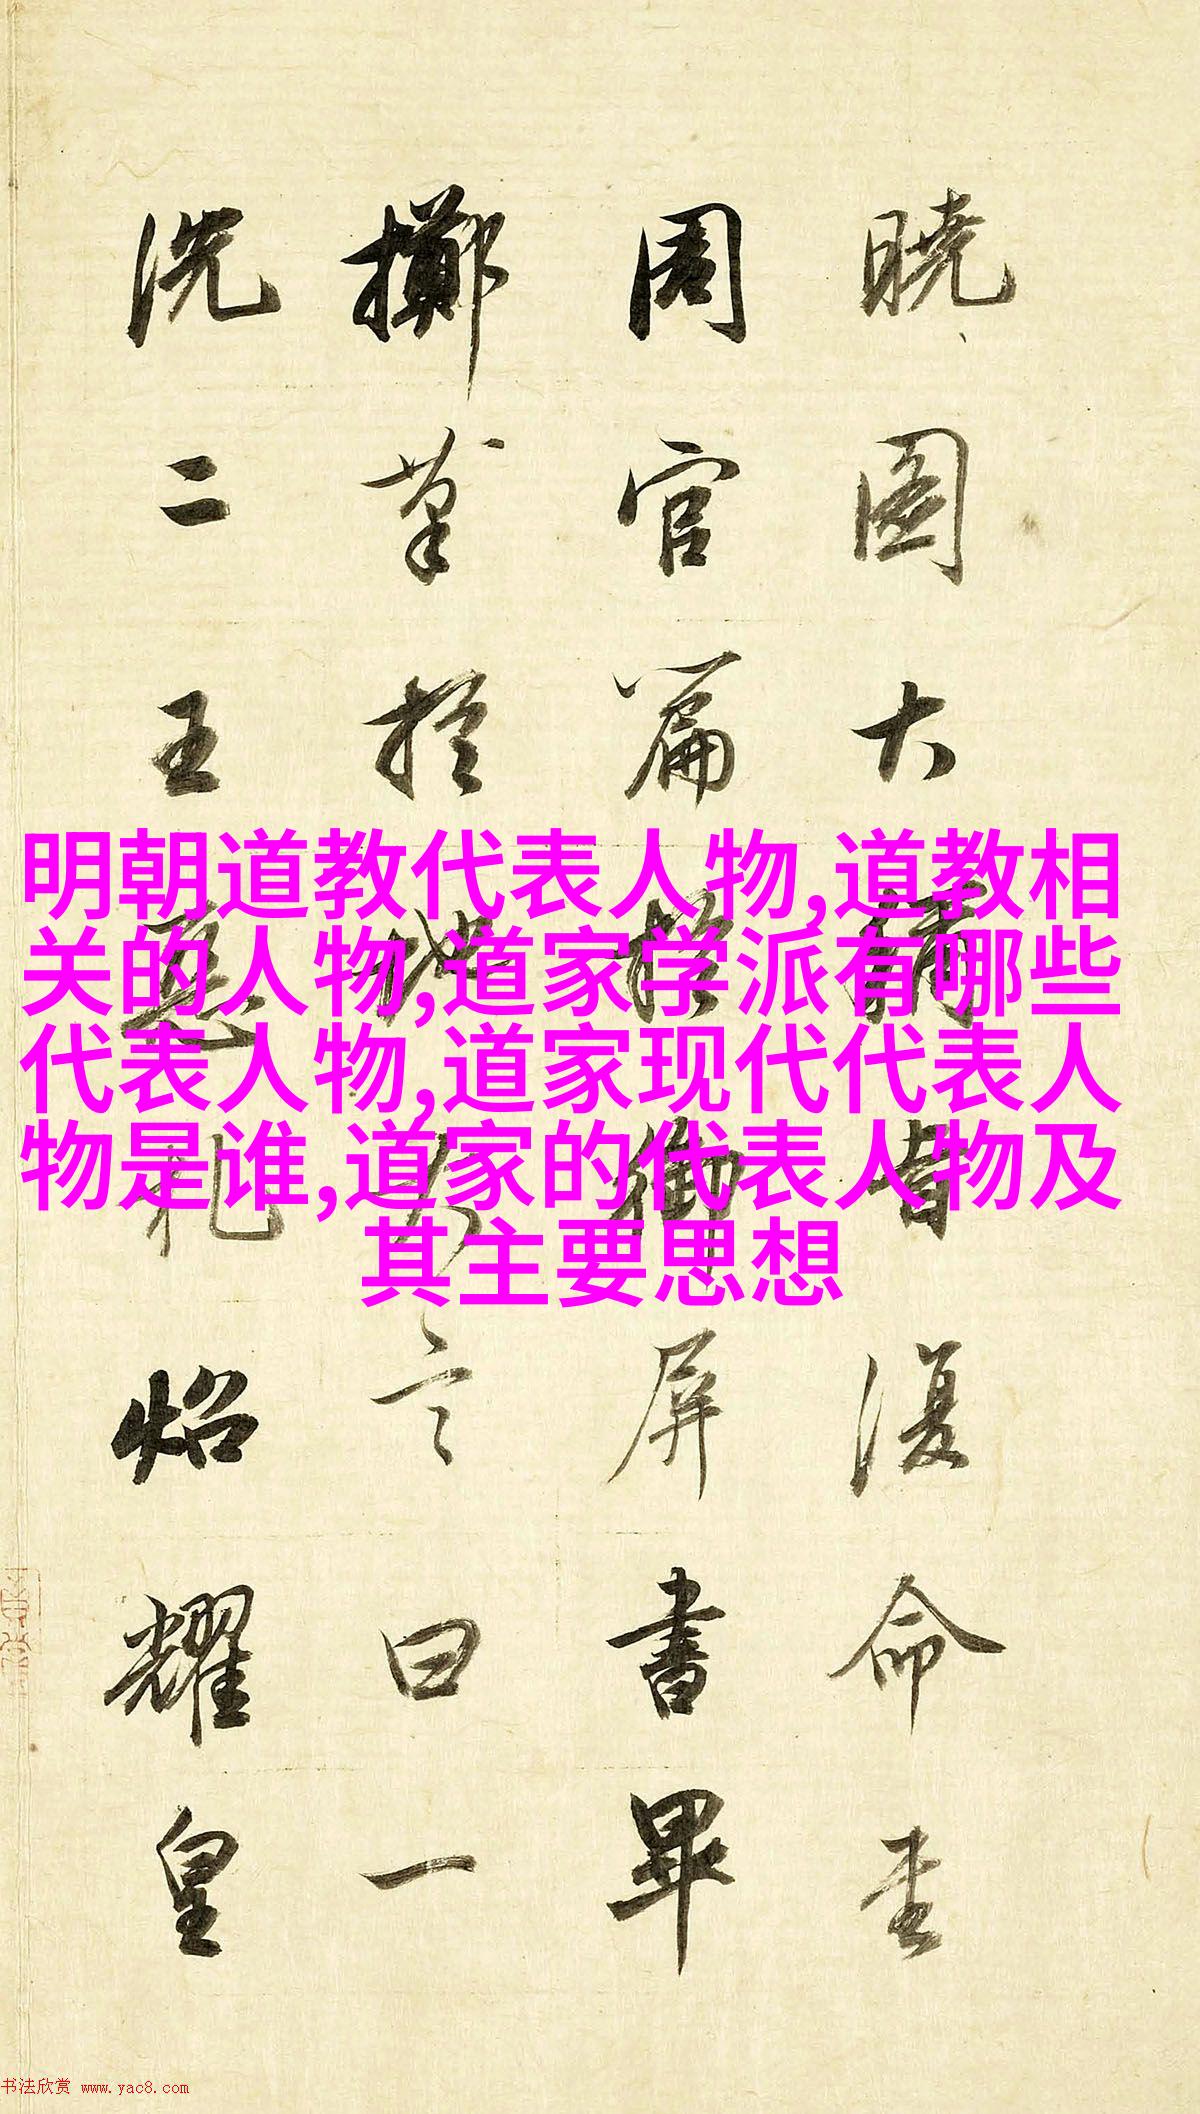 曉圖大復命
周官篇於御屏書畢
擲筆於地大言曰一
洗二王惡札炤耀皇
明朝道教代表人物,道教相
关的人物,道家学派有哪些
代表人物,道家现代代表人
物是谁,道家的代表人物及
其主要思想
书法欣赏 www.yac8.com